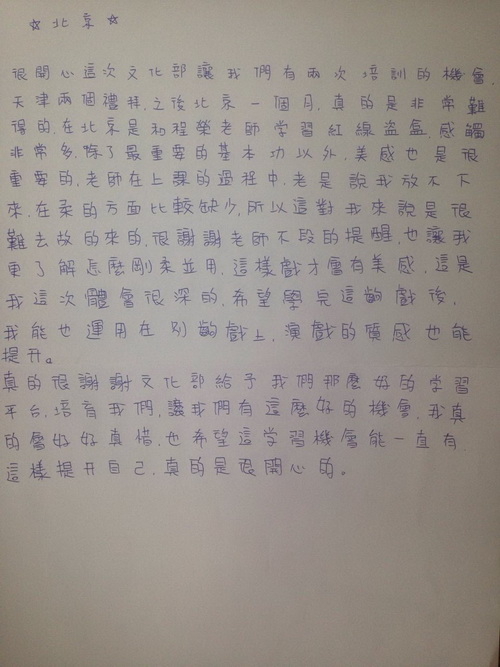 ☆北京☆
很開心這次文化部讓我們有兩次培訓的機會,
天津兩個禮拜,之後北京一個月,真的是非常難
得的,在北京是和程榮老師學習紅線盜盒,感觸
非常多,除了最重要的基本功以外,美感也是很
重要的,老師在上課的過程中,老是說我放不下
來,在柔的方面比較缺少,所以這對我來說是很
難去做的來的,很謝謝老師不段的提醒,也讓我
更了解怎麼剛柔並用,這樣戲才會有美感,這是
我這次體會很深的,希望學完這齣戲後,
我能也運用在別齣戲上,演戲的質感也能
提升。
真的很謝謝文化部給予我們那麼好的學習
平台,培育我們,讓我們有這麼好的機會,我真
的會好好真惜,也希望這學習機會能一直有,
這樣提升自己,真的是很開心的。